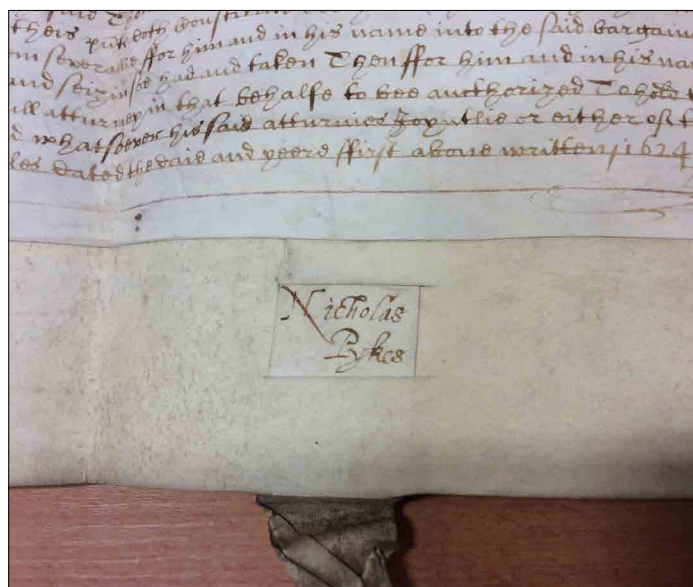 said
theis put doth constitute
severallie ffor him and in his name into the said bargaine
and seizin soe had and taken Then ffor him and in his nam
atturney in that behalfe to bee authorized To
whatsoever his said atturnies Joyntlie or either of t
les dated the daie and yeere ffirst above written 1624
Nicholas
Pykes